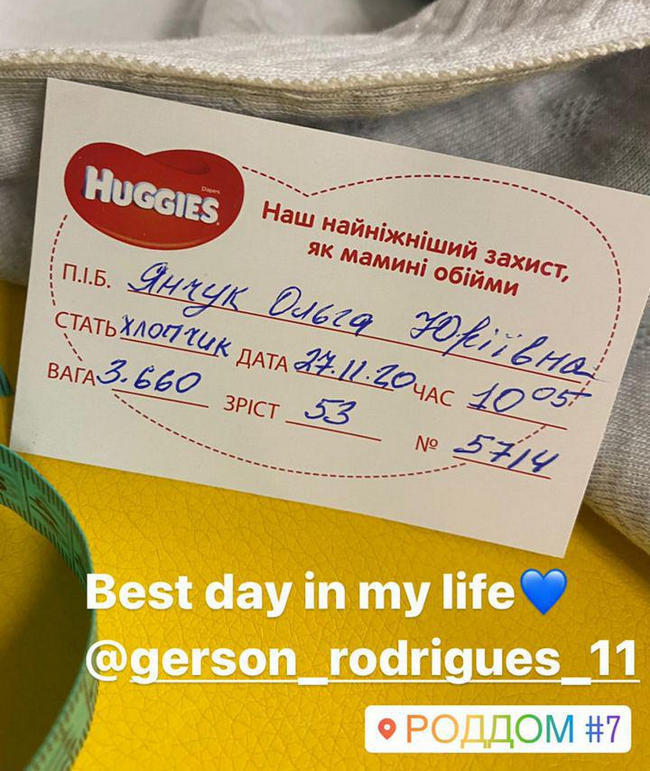 HUGGIES
Diapers
Наш найніжніший захист,
як мамині обійми
П.І.Б. Янчук Ольга Юріївна
СТАТЬ хлопчик ДАТА 27.11.20 ЧАС 10 05
ВАГА 3.660 ЗРІСТ 53 № 5714
Best day in my life💙
@gerson_rodrigues_11
РОДДОМ #7